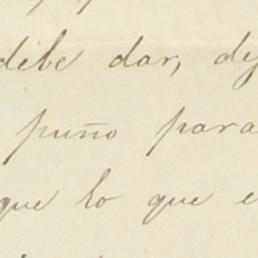 debe dar, de
puño para
que lo que e